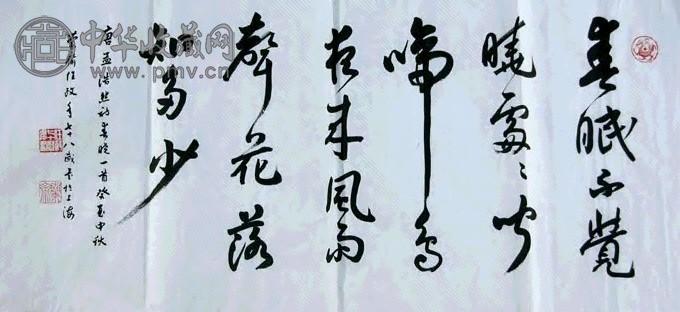 春眠不覺
曉處〻聞
啼鳥
夜来風雨
聲花落
知多少
唐孟浩然詩春曉一首癸酉中秋
任政年七十八歲書於上海
中华收藏网
www.pmv.cn